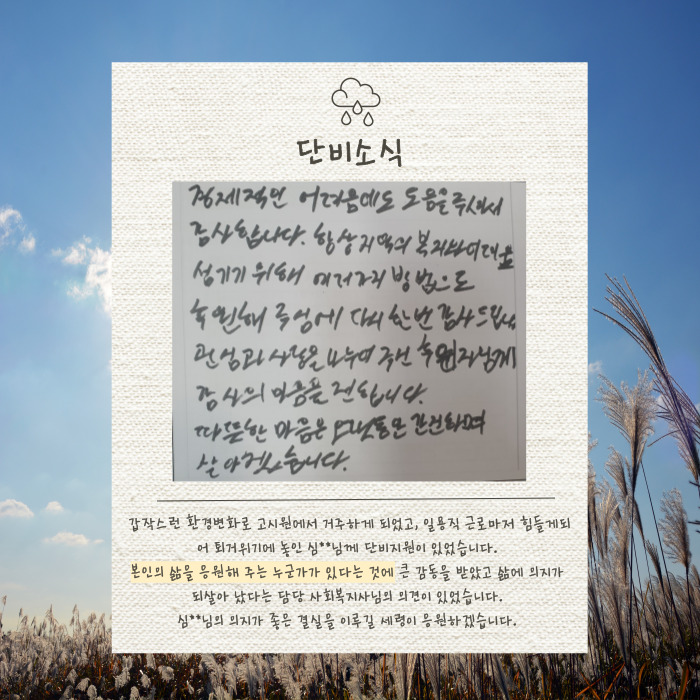 단비소식
경제적인 어려움에도 도움을 주셔서
감사합니다. 항상 지역의 복지
섬기기 위해 여러가지 방법으로
후원해 주심에 다시 한번 감사드립니다
관심과 사랑을 나누어 주신 후원자님께
감사의 마음을 전합니다.
따뜻한 마음은 간직하며
살아가겠습니다.
갑작스런 환경변화로 고시원에서 거주하게 되었고, 일용직 근로마저 힘들게되
어 퇴거위기에 놓인 심**님께 단비지원이 있었습니다.
본인의 삶을 응원해 주는 누군가가 있다는 것에 큰 감동을 받았고 삶에 의지가
되살아 났다는 담당 사회복지사님의 의견이 있었습니다.
심**님의 의지가 좋은 결실을 이루길 세령이 응원하겠습니다.